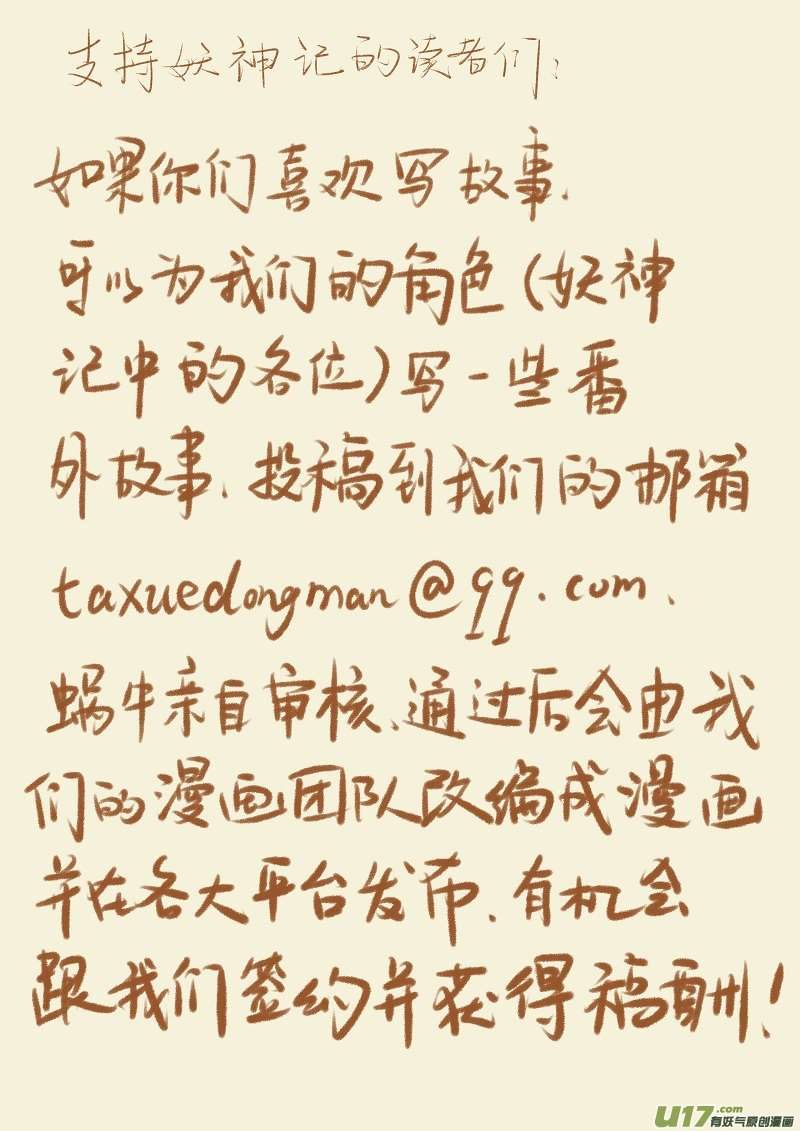 支持妖神记的读者们：
如果你们喜欢写故事、
可以为我们的角色(妖神
记中的各位)写一些番
外故事、投稿到我们的邮箱
taxuedongman@qq.com、
蜗牛亲自审核、通过后会由我
们的漫画团队改编成漫画
并在各大平台发布、有机会
跟我们签约并获得稿酬！
U17.com
有妖气原创漫画